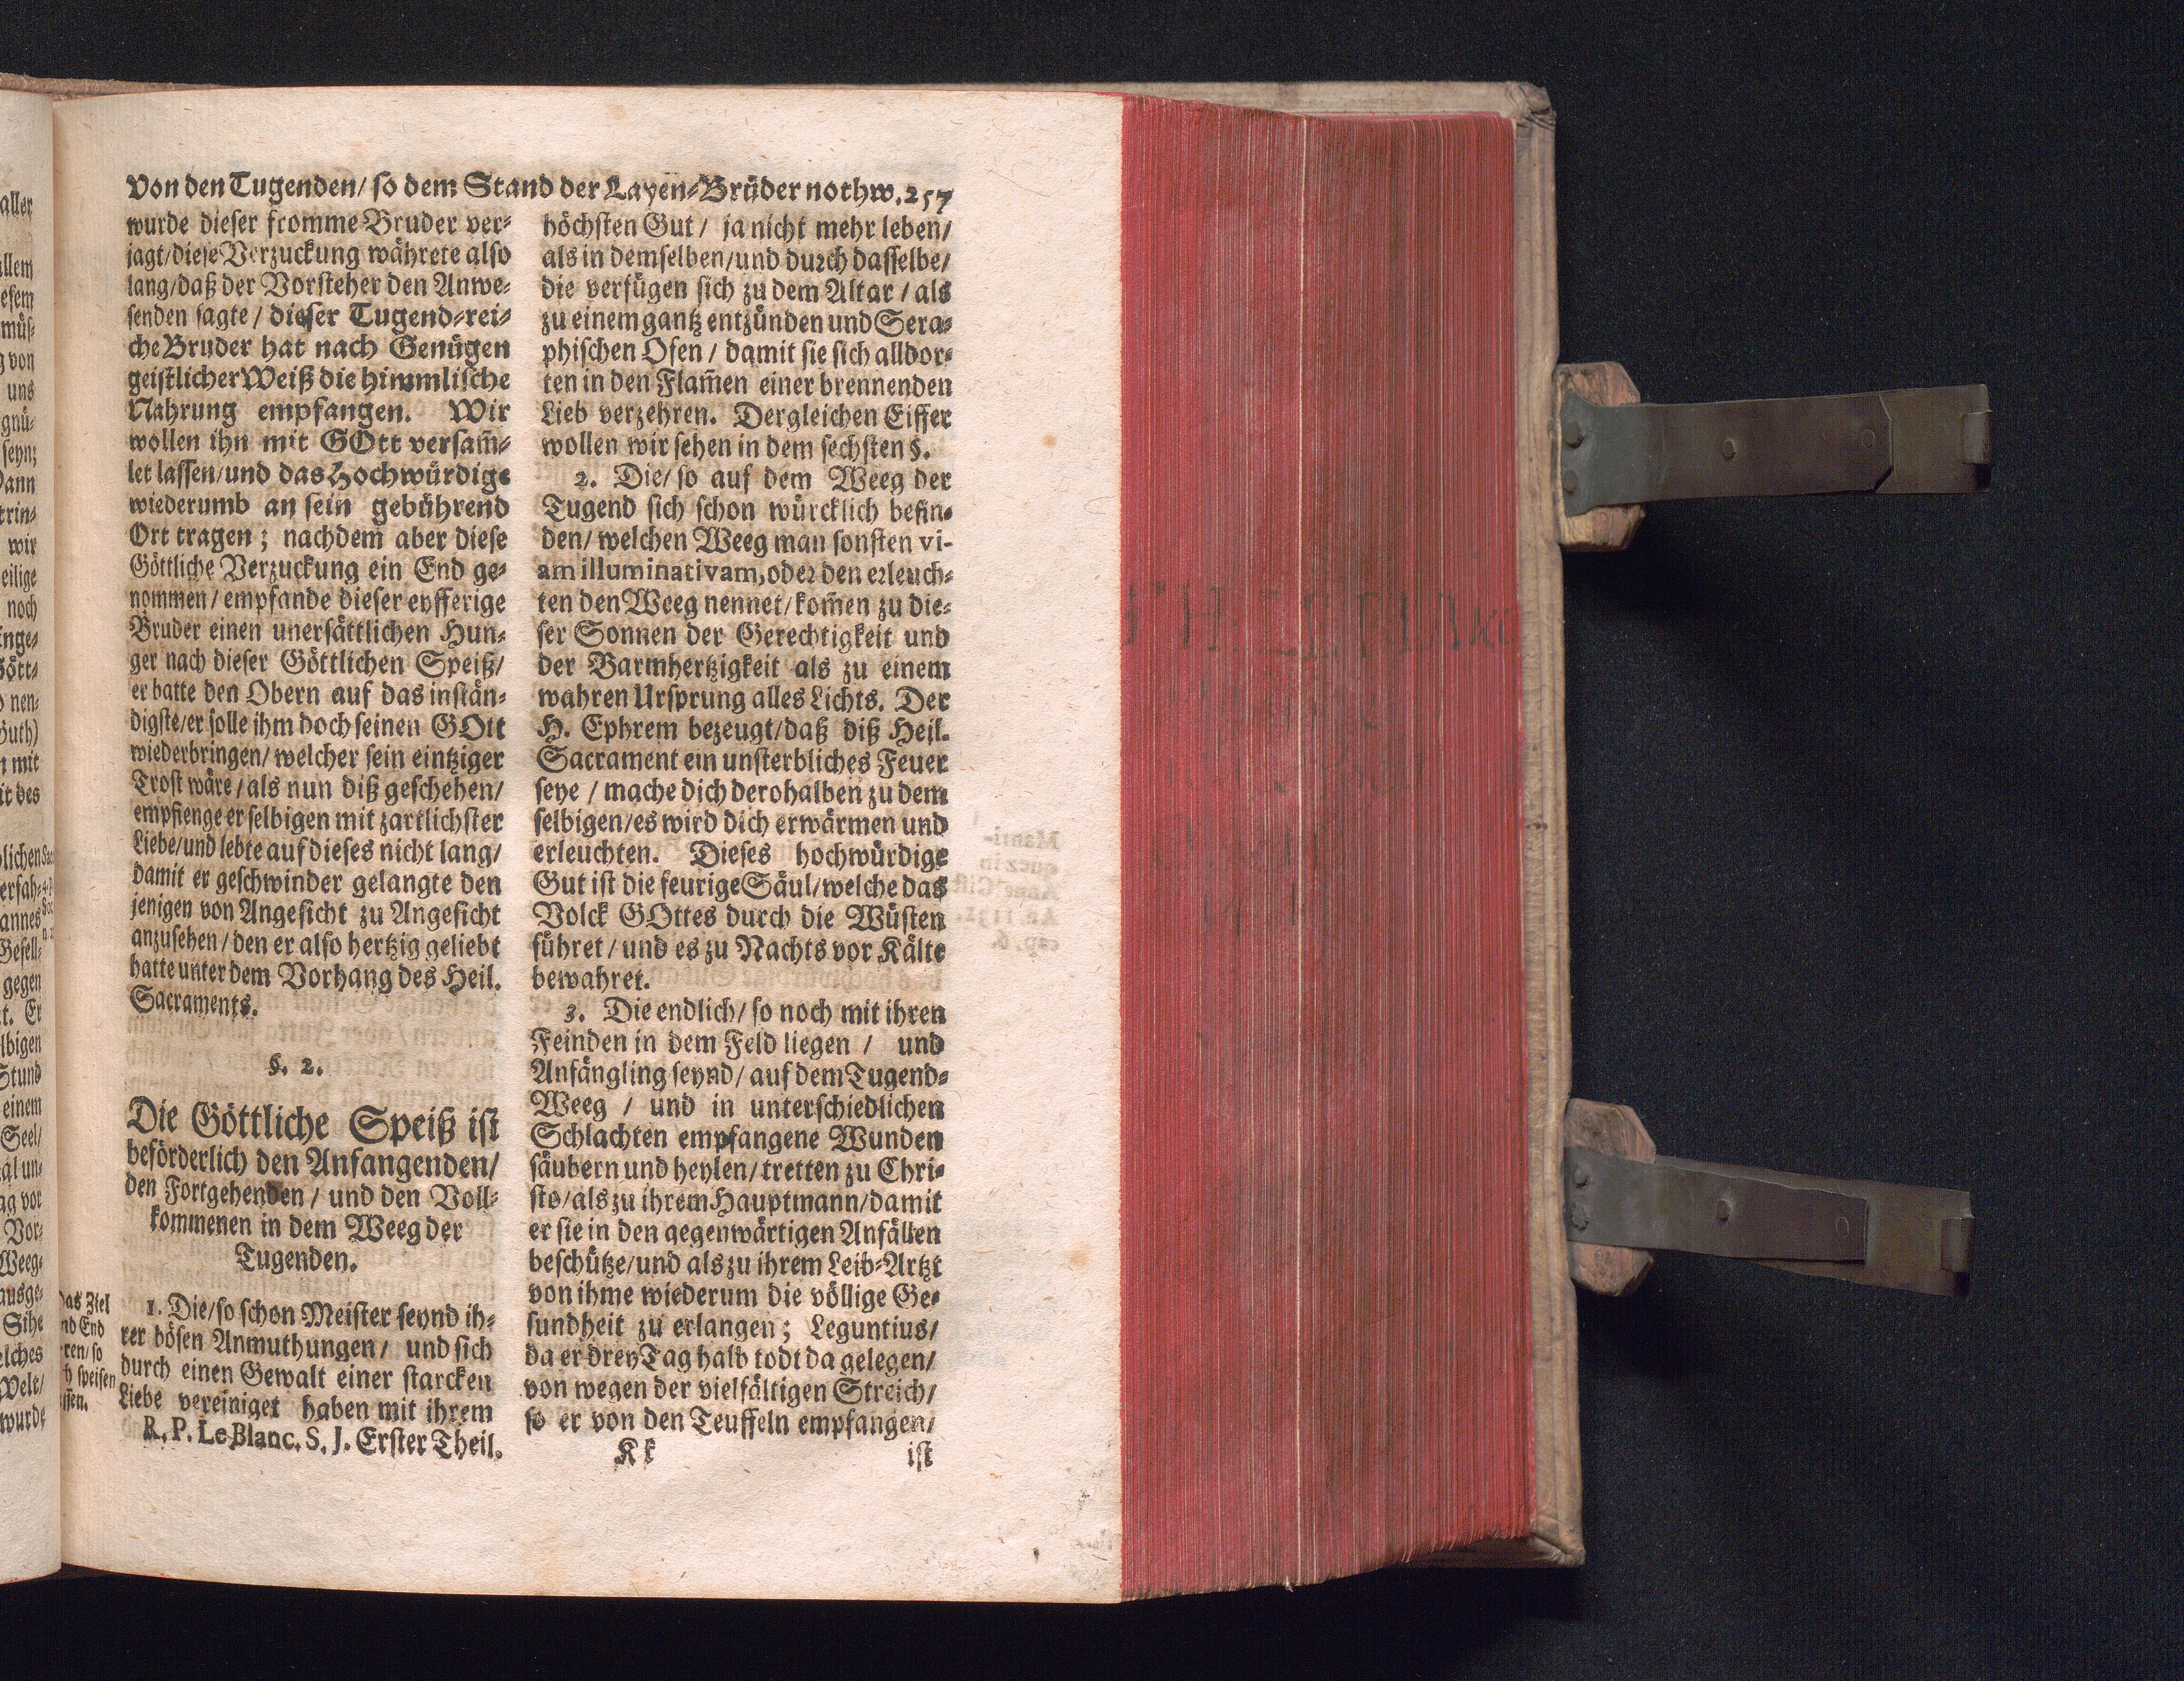 Von den Tugenden/ so dem Stand der Layen-Brüder nothw. 257
wurde dieser fromme Bruder ver-
jagt/diese Verzuckung währete also
lang/daß der Vorsteher den Anwe-
senden sagte / dieser Tugend-rei-
che Bruder hat nach Genügen
geistlicher Weiß die himmlische
Nahrung empfangen. Wir
wollen ihn mit GOtt versam̄-
let lassen/und das Hochwürdige
wiederumb an sein gebührend
Ort tragen; nachdem aber diese
Göttliche Verzuckung ein End ge-
nommen / empfande dieser eyfferige
Bruder einen unersättlichen Hun-
ger nach dieser Göttlichen Speiß/
er batte den Obern auf das instän-
digste/er solle ihm doch seinen GOtt
wiederbringen/ welcher sein eintziger
Trost wäre / als nun diß geschehen/
empfienge er selbigen mit zartlichster
Liebe/und lebte auf dieses nicht lang/
damit er geschwinder gelangte den
jenigen von Angesicht zu Angesicht
anzusehen / den er also hertzig geliebt
hatte unter dem Vorhang des Heil.
Sacraments.
§. 2.
Die Göttliche Speiß ist
beförderlich den Anfangenden/
den Fortgehenden / und den Voll-
kommenen in dem Weeg der
Tugenden.
1. Die/so schon Meister seynd ih-
rer bösen Anmuthungen / und sich
durch einen Gewalt einer starcken
Liebe vereiniget haben mit ihrem
R. P. Le Blanc. S. J. Erster Theil.
höchsten Gut / ja nicht mehr leben/
als in demselben/und durch dasselbe/
die verfügen sich zu dem Altar / als
zu einem gantz entzünden und Sera-
phischen Ofen / damit sie sich alldor-
ten in den Flam̄en einer brennenden
Lieb verzehren. Dergleichen Eiffer
wollen wir sehen in dem sechsten §.
2. Die/ so auf dem Weeg der
Tugend sich schon würcklich befin-
den/ welchen Weeg man sonsten vi-
am illuminativam, oder den erleuch-
ten den Weeg nennet/kom̄en zu die-
ser Sonnen der Gerechtigkeit und
der Barmhertzigkeit als zu einem
wahren Ursprung alles Lichts. Der
H. Ephrem bezeugt/daß diß Heil.
Sacrament ein unsterbliches Feuer
seye / mache dich derohalben zu dem
selbigen/es wird dich erwärmen und
erleuchten. Dieses hochwürdige
Gut ist die feurige Säul/welche das
Volck GOttes durch die Wüsten
führet / und es zu Nachts vor Kälte
bewahret.
3. Die endlich/ so noch mit ihren
Feinden in dem Feld liegen / und
Anfängling seynd/ auf dem Tugend-
Weeg / und in unterschiedlichen
Schlachten empfangene Wunden
säubern und heylen/tretten zu Chri-
sto/als zu ihrem Hauptmann/damit
er sie in den gegenwärtigen Anfällen
beschütze/und als zu ihrem Leib-Artzt
von ihme wiederum die völlige Ge-
sundheit zu erlangen; Leguntius/
da er drey Tag halb todt da gelegen/
von wegen der vielfältigen Streich/
so er von den Teuffeln empfangen/
Kk
ist